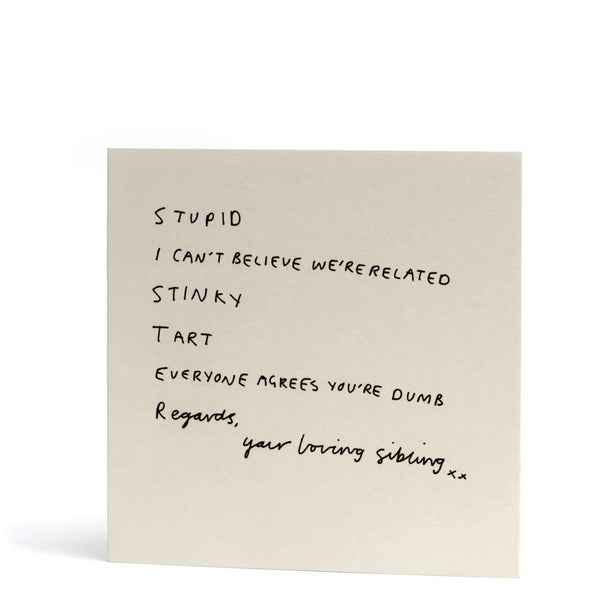 STUPID
I CAN'T BELIEVE WE'RE RELATED
STINKY
TART
EVERYONE AGREES YOU'RE DUMB
Regards,
your loving sibling xx